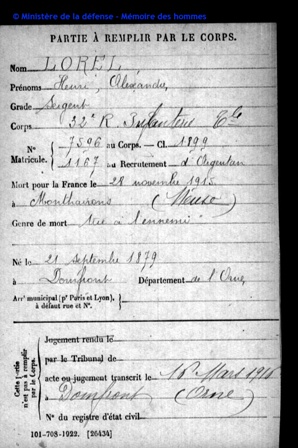 © Ministère de la défense - Mémoire des hommes
PARTIE À REMPLIR PAR LE CORPS.
Nom LOREL
Prénoms Henri, Alexandre,
Grade Sergent
Corps 32e R. Infanterie Cle
N° 7596 au Corps. — Cl. 1899
Matricule. 1167 au Recrutement d'Argentan
Mort pour la France le 28 novembre 1915
à Monthairons (Meuse)
Genre de mort Tué à l'ennemi
Né le 21 septembre 1879
à Domfront Département de l'Orne,
Arr' municipal (p' Paris et Lyon),
à défaut rue et N°.
Cette partie n'est pas à remplir par le Corps.
Jugement rendu le
par le Tribunal de
acte ou jugement transcrit le 16 Mars 1916
à Domfront (Orne)
N° du registre d'état civil
101-708-1922. [26434]